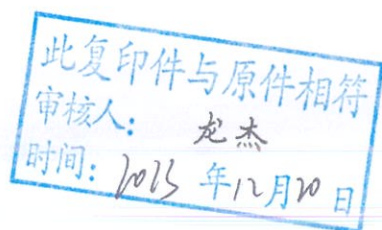 此复印件与原件相符
审核人: 龙杰
时间: 2023 年12月20日